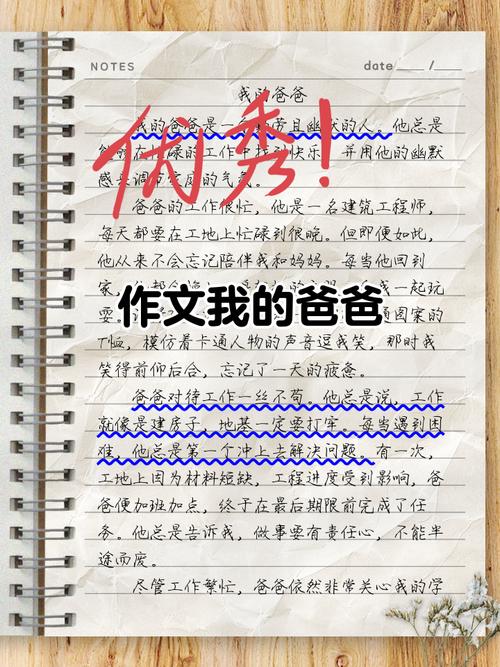 NOTES
date___/__
我的爸爸
我的爸爸是一个勤劳且幽默的人。他总是
能够在忙碌的工作中找到快乐，并用他的幽默
感来调节家庭的气氛。
优秀！
爸爸的工作很忙，他是一名建筑工程师，
每天都要在工地上忙碌到很晚。但即便如此，
他从来不会忘记陪伴我和妈妈。每当他回到
家，我一起玩
作文我的爸爸
耍。通图案的
T恤，模仿着卡通人物的声音逗我笑，那时我
笑得前仰后合，忘记了一天的疲惫。
爸爸对待工作一丝不苟。他总是说，工作
就像是建房子，地基一定要打牢。每当遇到困
难，他总是第一个冲上去解决问题。有一次，
工地上因为材料短缺，工程进度受到影响，爸
爸便加班加点，终于在最后期限前完成了任
务。他总是告诉我，做事要有责任心，不能半
途而废。
尽管工作繁忙，爸爸依然非常关心我的学